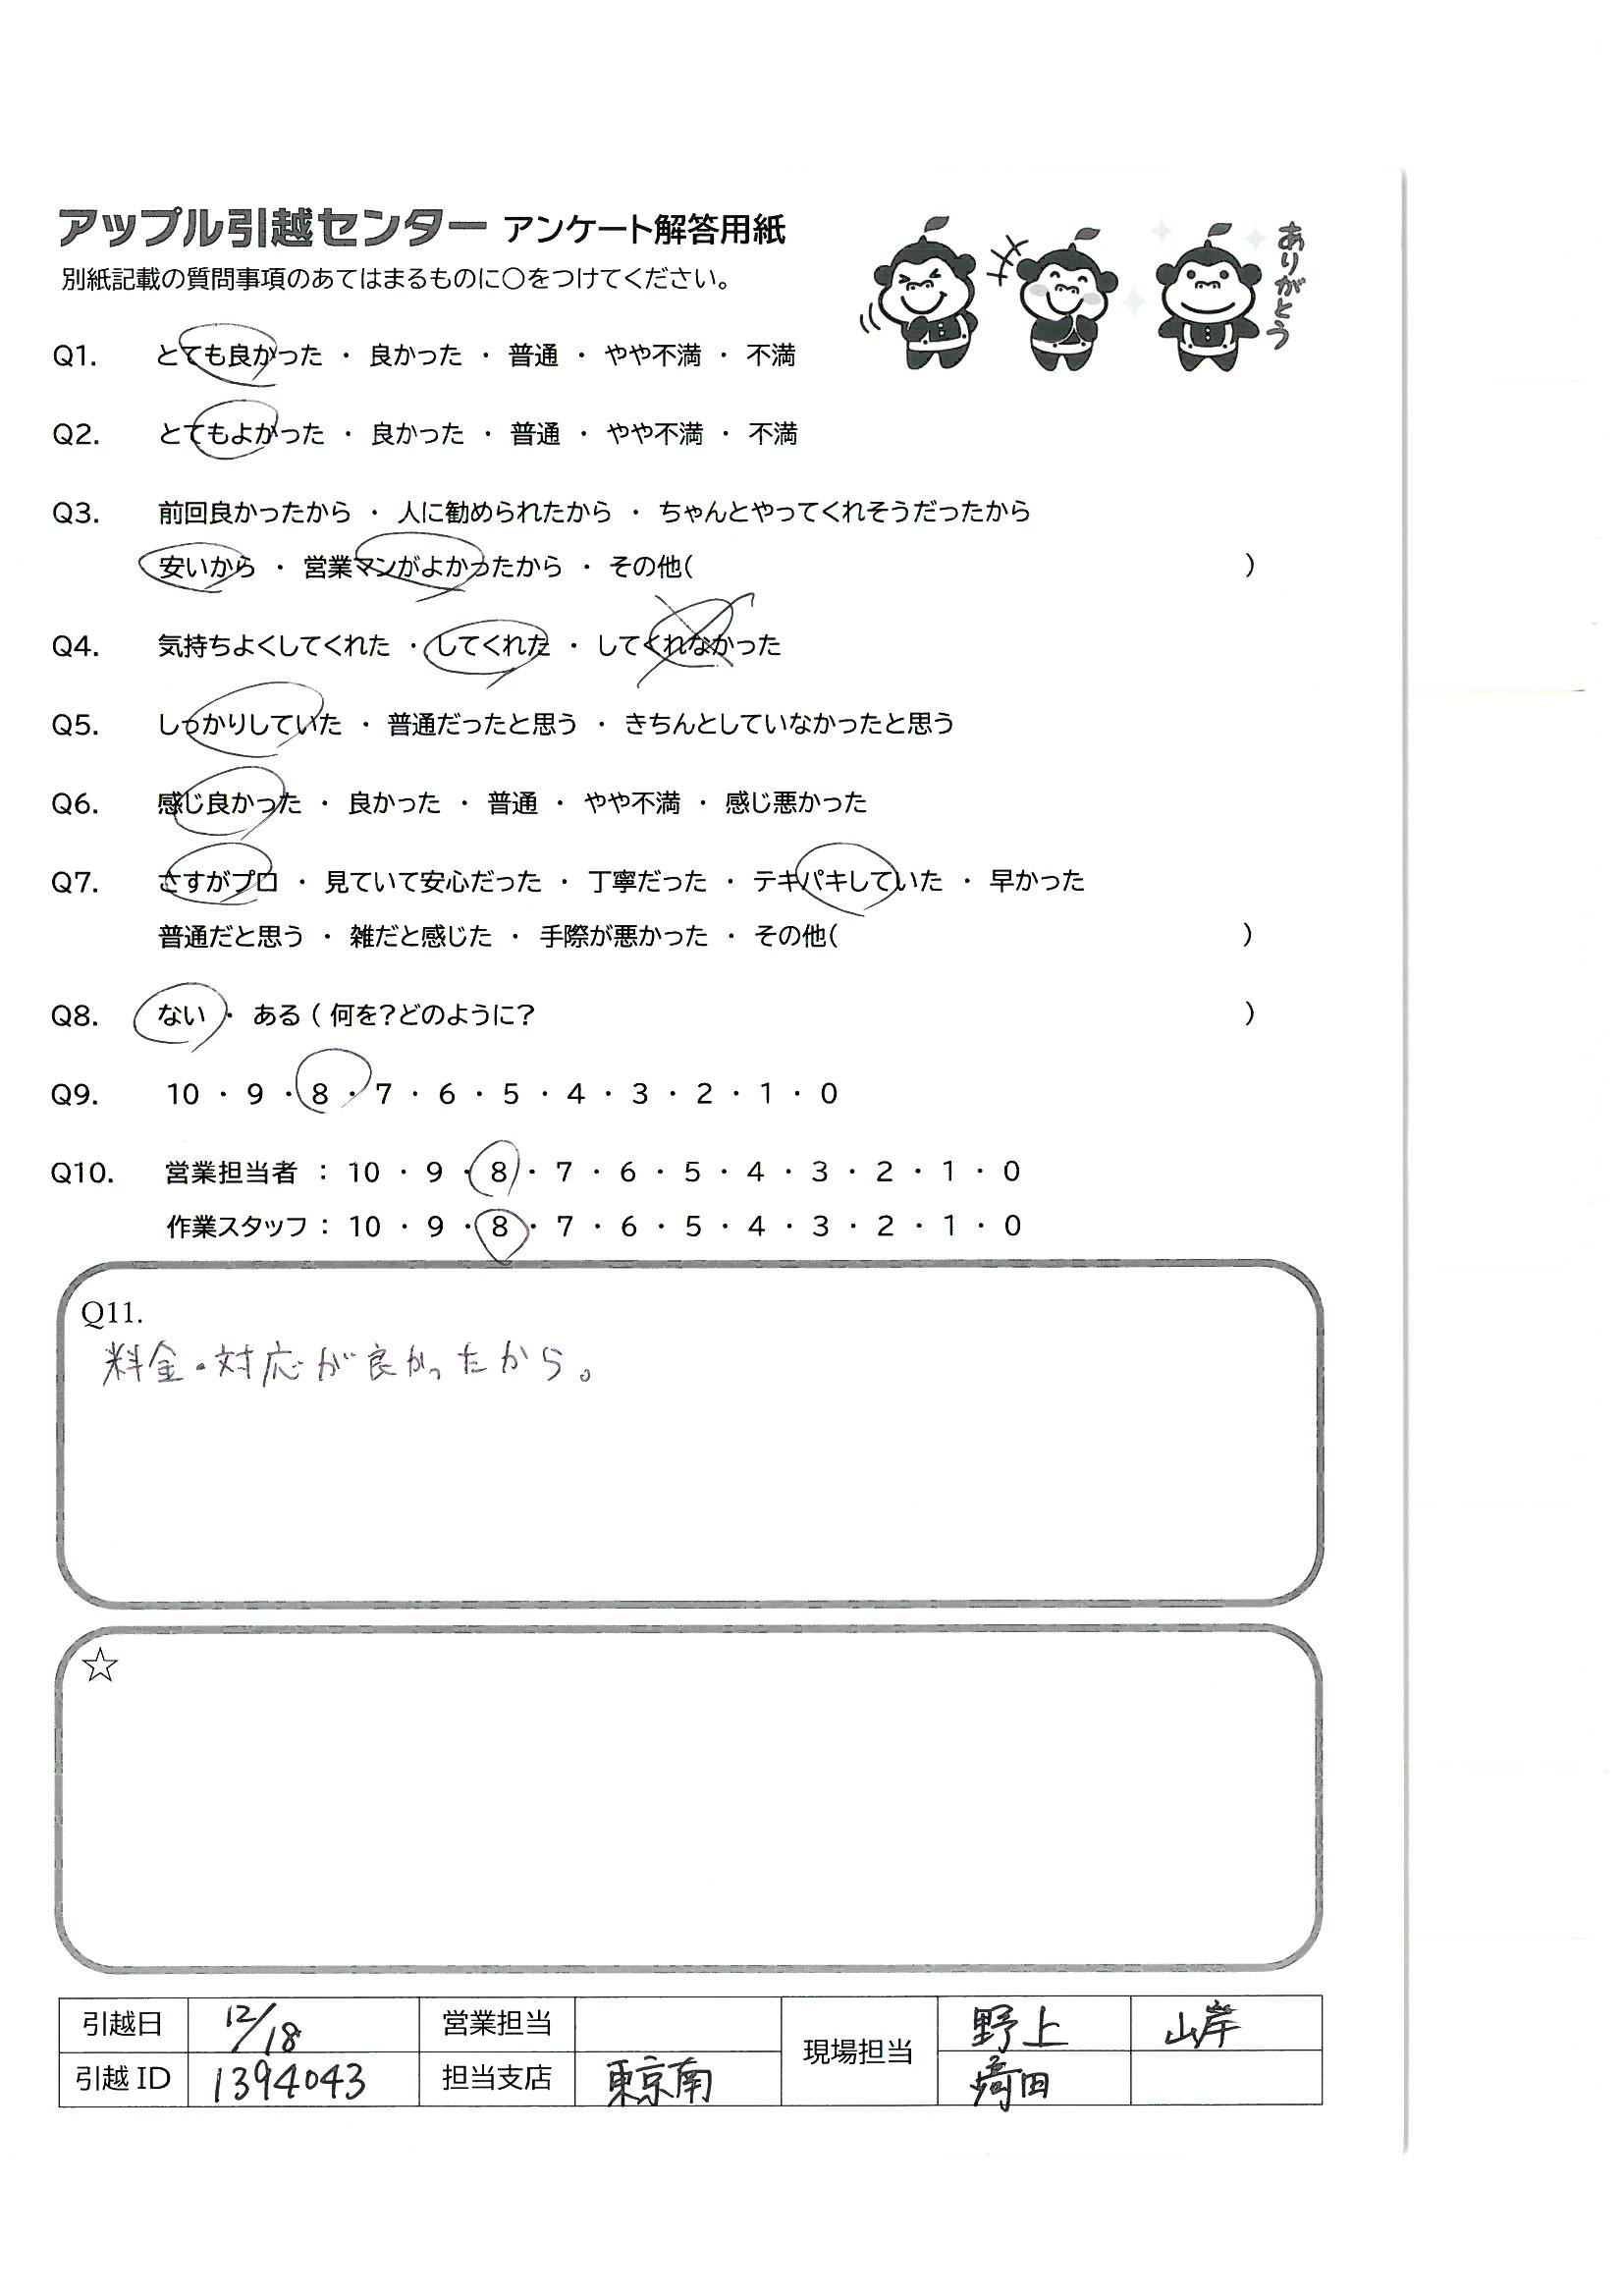 アップル引越センター アンケート解答用紙
別紙記載の質問事項のあてはまるものに○をつけてください。
ありがとう
Q1. とても良かった ・ 良かった ・ 普通 ・ やや不満 ・ 不満
Q2. とてもよかった ・ 良かった ・ 普通 ・ やや不満 ・ 不満
Q3. 前回良かったから ・ 人に勧められたから ・ ちゃんとやってくれそうだったから
安いから ・ 営業マンがよかったから ・ その他( )
Q4. 気持ちよくしてくれた ・ してくれた ・ してくれなかった
Q5. しっかりしていた ・ 普通だったと思う ・ きちんとしていなかったと思う
Q6. 感じ良かった ・ 良かった ・ 普通 ・ やや不満 ・ 感じ悪かった
Q7. さすがプロ ・ 見ていて安心だった ・ 丁寧だった ・ テキパキしていた ・ 早かった
普通だと思う ・ 雑だと感じた ・ 手際が悪かった ・ その他( )
Q8. ない ・ ある ( 何を?どのように? )
Q9. 10 ・ 9 ・ 8 ・ 7 ・ 6 ・ 5 ・ 4 ・ 3 ・ 2 ・ 1 ・ 0
Q10. 営業担当者 : 10 ・ 9 ・ 8 ・ 7 ・ 6 ・ 5 ・ 4 ・ 3 ・ 2 ・ 1 ・ 0
作業スタッフ : 10 ・ 9 ・ 8 ・ 7 ・ 6 ・ 5 ・ 4 ・ 3 ・ 2 ・ 1 ・ 0
Q11.
料金・対応が良かったから。
☆
引越日 12/18 営業担当 現場担当 野上 山岸
引越 ID 1394043 担当支店 東京南 﨑田